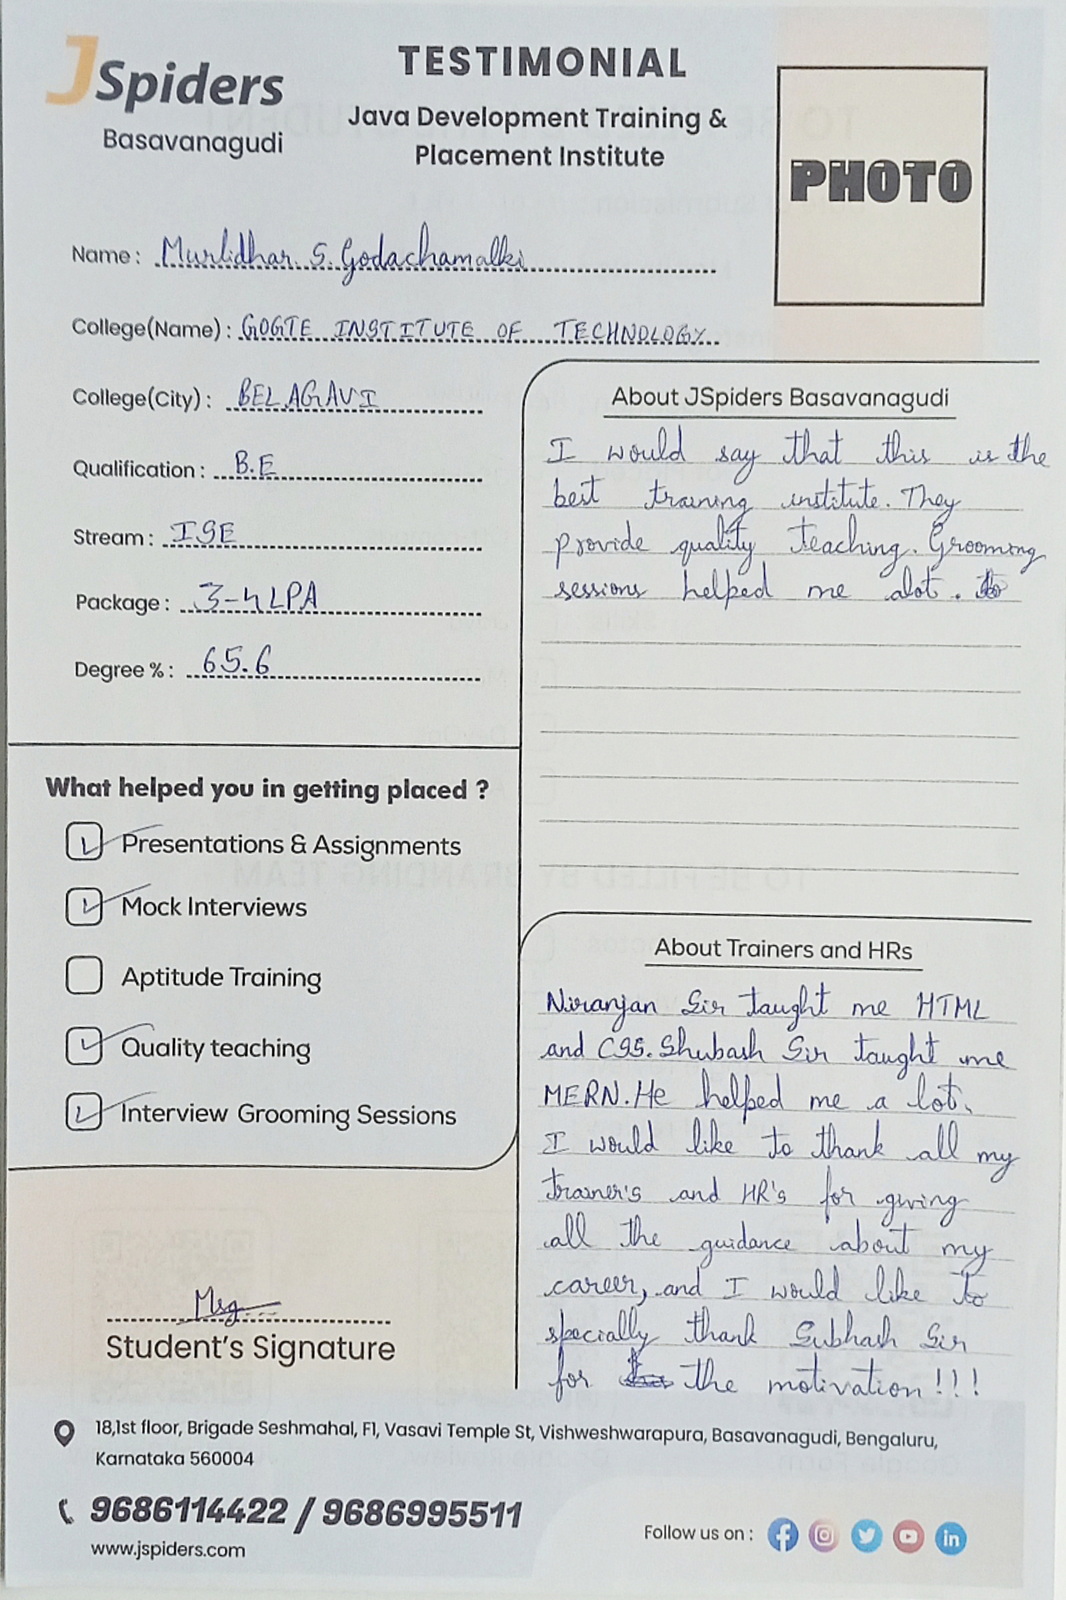 JSpiders
Basavanagudi
TESTIMONIAL
Java Development Training &
Placement Institute
PHOTO
Name : Murlidhar. S. Godachamalki
College(Name) : GOGTE INSTITUTE OF TECHNOLOGY
College(City) : BELAGAVI
Qualification : B.E
Stream : ISE
Package : 3-4 LPA
Degree % : 65.6
What helped you in getting placed ?
Presentations & Assignments
Mock Interviews
Aptitude Training
Quality teaching
Interview Grooming Sessions
Student's Signature
About JSpiders Basavanagudi
I would say that this is the
best training institute. They
provide quality teaching. Grooming
sessions helped me alot.
About Trainers and HRs
Niranjan Sir taught me HTML
and CSS. Shubash Sir taught me
MERN. He helped me a lot.
I would like to thank all my
trainer's and HR's for giving
all the guidance about my
career, and I would like to
specially thank Subhash Sir
for the motivation!!!
18,1st floor, Brigade Seshmahal, F1, Vasavi Temple St, Vishweshwarapura, Basavanagudi, Bengaluru,
Karnataka 560004
9686114422 / 9686995511
www.jspiders.com
Follow us on :